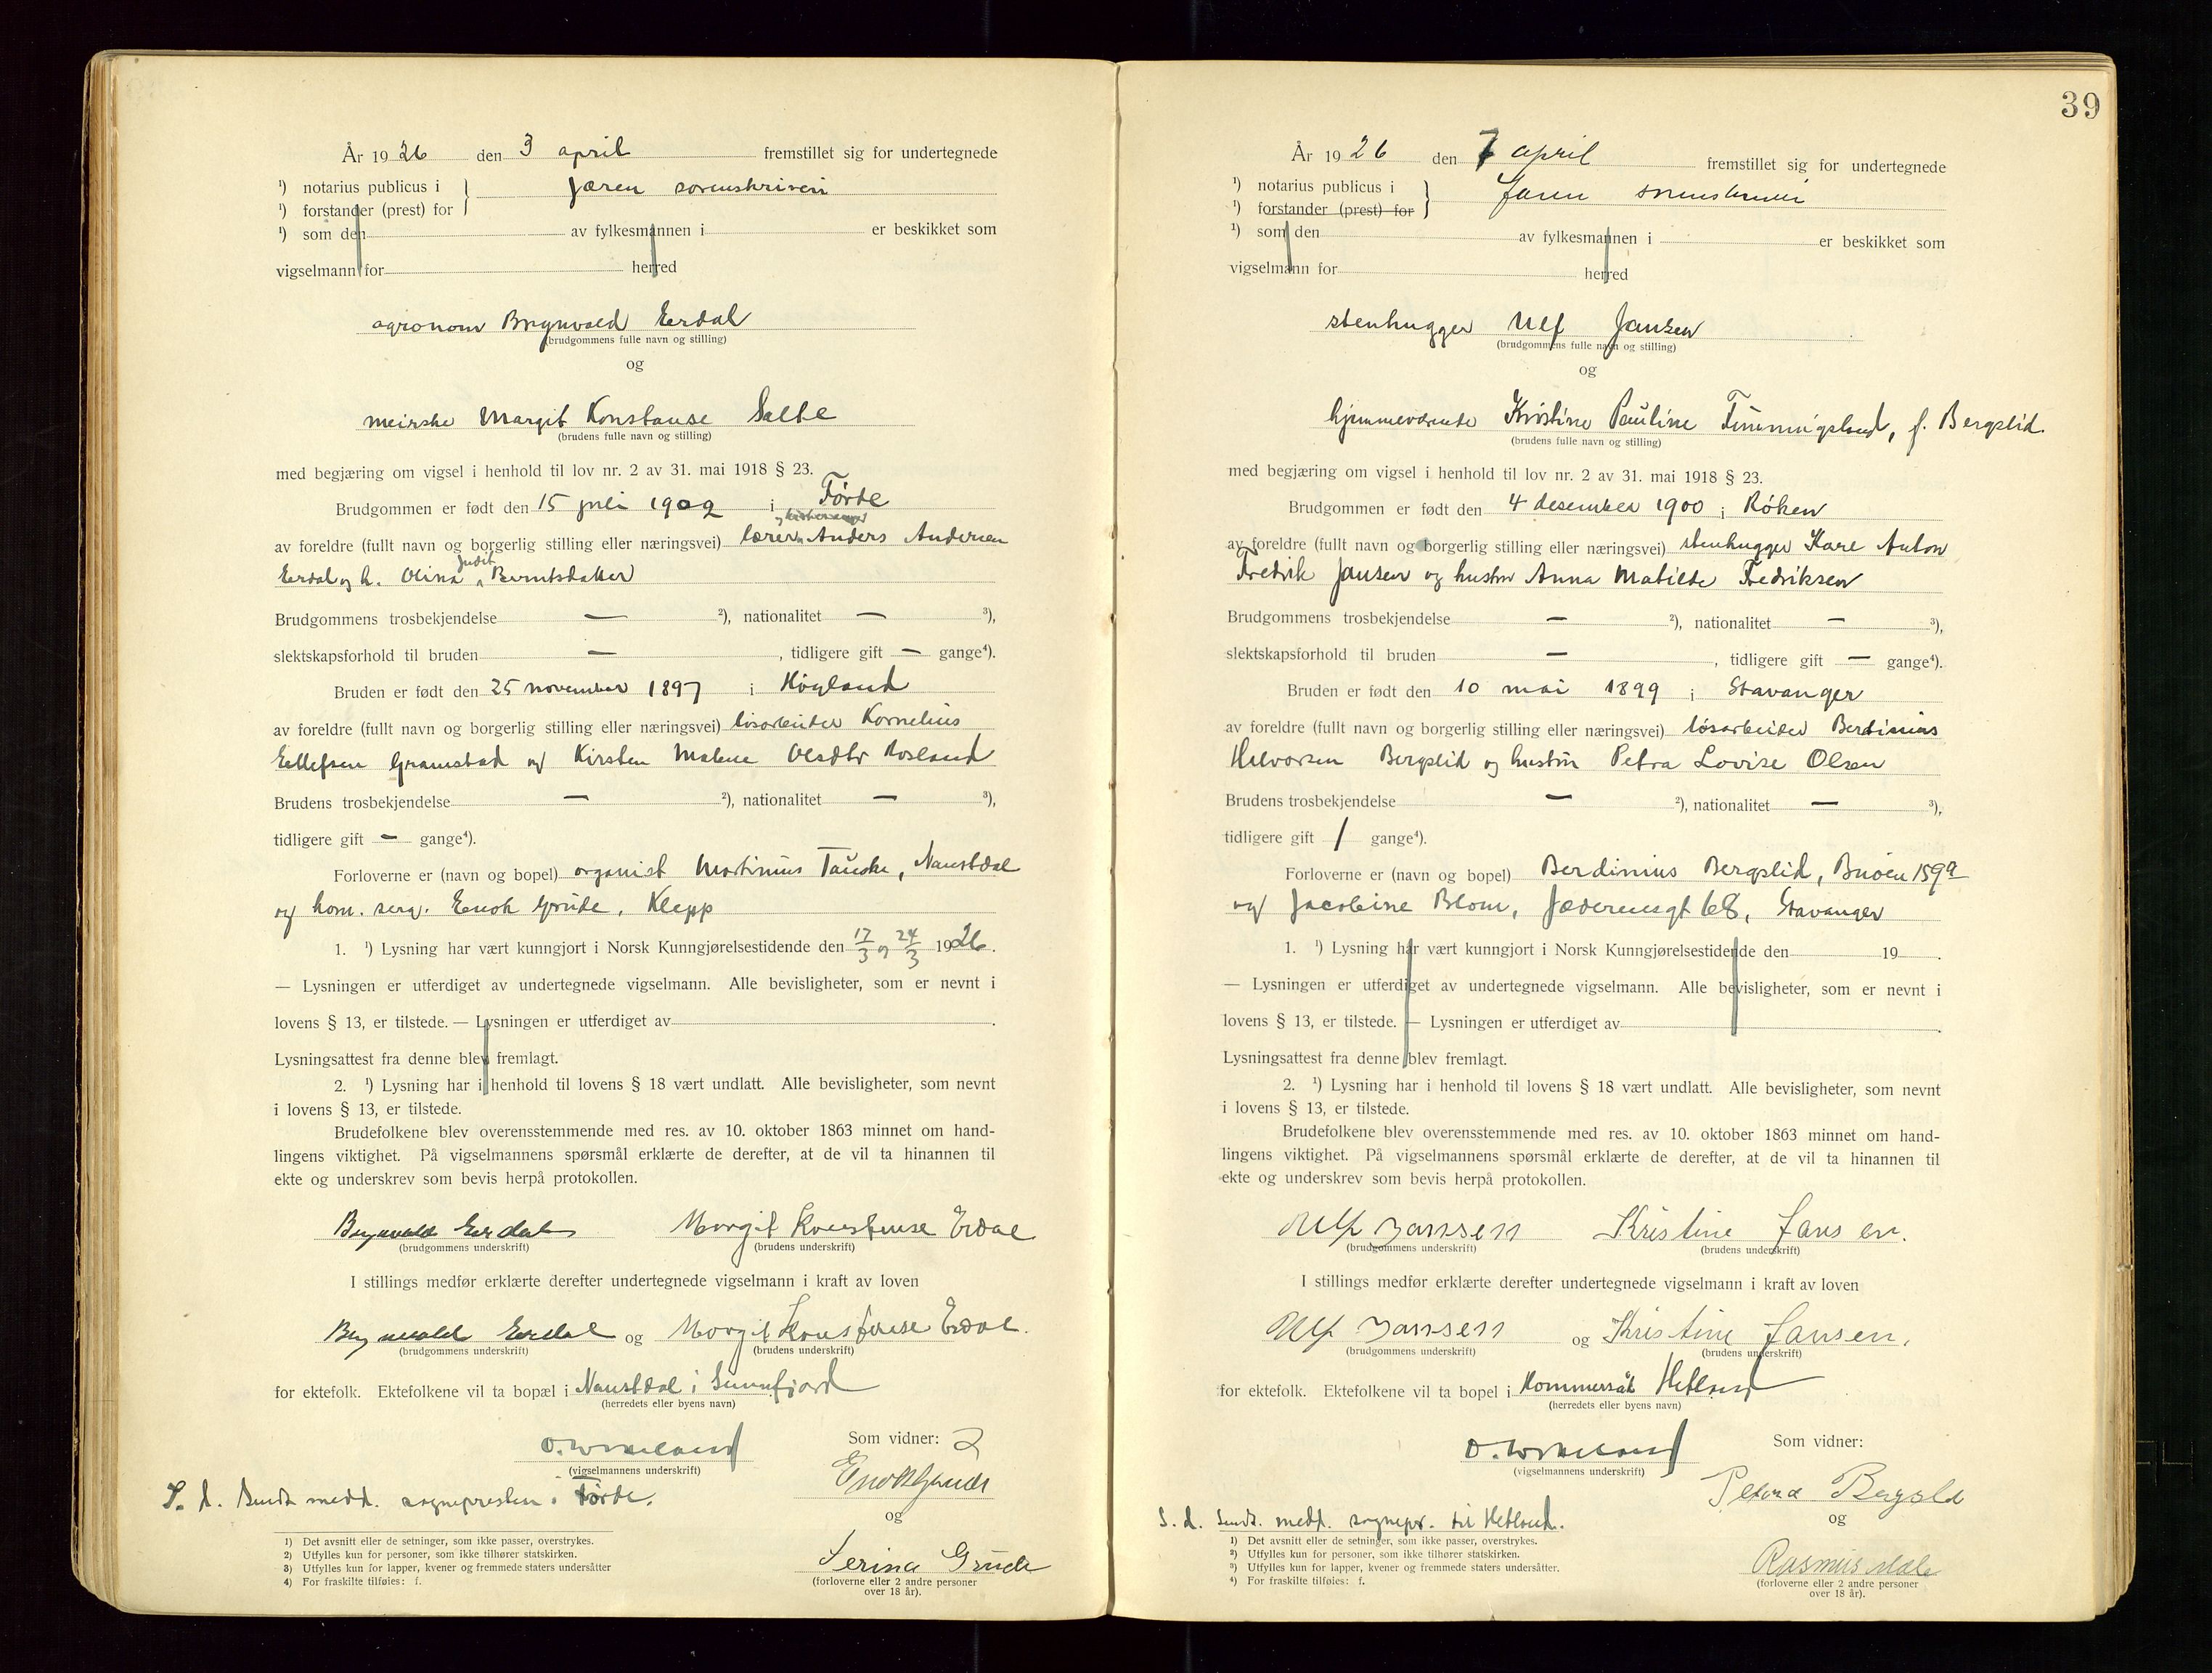 År 1926 den 3 april fremstillet sig for undertegnede
¹) notarius publicus i } Jæren sorenskriveri
¹) forstander (prest) for
¹) som den av fylkesmannen i er beskikket som
vigselmann for herred
agronom Brynvald Eerdal
(brudgommens fulle navn og stilling)
og
meirske Margit Konstanse Salte
(brudens fulle navn og stilling)
med begjæring om vigsel i henhold til lov nr. 2 av 31. mai 1918 § 23.
Brudgommen er født den 15 juli 1902 i Førde
av foreldre (fullt navn og borgerlig stilling eller næringsvei) lærer Anders Andersen
Eerdal og h. Olina Judit Berntsdatter
Brudgommens trosbekjendelse — ²), nationalitet — ³),
slektskapsforhold til bruden — , tidligere gift — gange⁴).
Bruden er født den 25 november 1897 i Høyland
av foreldre (fullt navn og borgerlig stilling eller næringsvei) løsarbeider Kornelius
Eellefsen Gramstad og Kirsten Malene Olsdtr Rosland
Brudens trosbekjendelse — ²), nationalitet — ³),
tidligere gift — gange⁴).
Forloverne er (navn og bopel) organist Martinius Tauske, Naustdal
og kom. serg. Enok Grude, Klepp
1. ¹) Lysning har vært kunngjort i Norsk Kunngjørelsestidende den 17/3 og 24/3 1926.
— Lysningen er utferdiget av undertegnede vigselmann. Alle bevisligheter, som er nevnt i
lovens § 13, er tilstede. — Lysningen er utferdiget av .
Lysningsattest fra denne blev fremlagt.
2. ¹) Lysning har i henhold til lovens § 18 vært undlatt. Alle bevisligheter, som nevnt
i lovens § 13, er tilstede.
Brudefolkene blev overensstemmende med res. av 10. oktober 1863 minnet om hand-
lingens viktighet. På vigselmannens spørsmål erklærte de derefter, at de vil ta hinannen til
ekte og underskrev som bevis herpå protokollen.
Brynvald Eerdal Margit Konstanse Erdal
(brudgommens underskrift) (brudens underskrift)
I stillings medfør erklærte derefter undertegnede vigselmann i kraft av loven
Brynvald Eerdal og Margit Konstanse Erdal.
(brudgommens underskrift) (brudens underskrift)
for ektefolk. Ektefolkene vil ta bopæl i Naustdal i Sunnfjord
(herredets eller byens navn)
O. Omeland Som vidner: 2
(vigselmannens underskrift) Enok Grude
S. d. Sendt medd. sognepresten i Førde.
og
Serina Grude
(forloverne eller 2 andre personer
over 18 år).
1) Det avsnitt eller de setninger, som ikke passer, overstrykes.
2) Utfylles kun for personer, som ikke tilhører statskirken.
3) Utfylles kun for lapper, kvener og fremmede staters undersåtter
4) For fraskilte tilføies: f.
39
År 1926 den 7 april fremstillet sig for undertegnede
¹) notarius publicus i } Jæren sorenskriveri
¹) forstander (prest) for
¹) som den av fylkesmannen i er beskikket som
vigselmann for herred
stenhugger Ulf Jansen
(brudgommens fulle navn og stilling)
og
hjemmeværende Kristine Pauline Timmingsland, f. Bergslid
(brudens fulle navn og stilling)
med begjæring om vigsel i henhold til lov nr. 2 av 31. mai 1918 § 23.
Brudgommen er født den 4 desember 1900 i Røken
av foreldre (fullt navn og borgerlig stilling eller næringsvei) stenhugger Karl Anton
Fredrik Jansen og hustru Anna Matilde Fredriksen
Brudgommens trosbekjendelse — ²), nationalitet — ³),
slektskapsforhold til bruden — , tidligere gift — gange⁴).
Bruden er født den 10 mai 1899 i Stavanger
av foreldre (fullt navn og borgerlig stilling eller næringsvei) løsarbeider Berdinius
Halvorsen Bergslid og hustru Petra Lovise Olsen
Brudens trosbekjendelse — ²), nationalitet — ³),
tidligere gift 1 gange⁴).
Forloverne er (navn og bopel) Berdinius Bergslid, Buøen 159a
og Jacobine Blom, Jæderensgt 68, Stavanger
1. ¹) Lysning har vært kunngjort i Norsk Kunngjørelsestidende den 19 .
— Lysningen er utferdiget av undertegnede vigselmann. Alle bevisligheter, som er nevnt i
lovens § 13, er tilstede. — Lysningen er utferdiget av .
Lysningsattest fra denne blev fremlagt.
2. ¹) Lysning har i henhold til lovens § 18 vært undlatt. Alle bevisligheter, som nevnt
i lovens § 13, er tilstede.
Brudefolkene blev overensstemmende med res. av 10. oktober 1863 minnet om hand-
lingens viktighet. På vigselmannens spørsmål erklærte de derefter, at de vil ta hinannen til
ekte og underskrev som bevis herpå protokollen.
Ulf Jansen Kristine Jansen.
(brudgommens underskrift) (brudens underskrift)
I stillings medfør erklærte derefter undertegnede vigselmann i kraft av loven
Ulf Jansen og Kristine Jansen.
(brudgommens underskrift) (brudens underskrift)
for ektefolk. Ektefolkene vil ta bopel i Hommersåk Hetland
(herredets eller byens navn)
O. Omeland Som vidner:
(vigselmannens underskrift) Petra Bergslid
S. d. Sendt. medd. sognepr. til Hetland.
og
Rasmus Male
(forloverne eller 2 andre personer
over 18 år).
¹) Det avsnitt eller de setninger, som ikke passer, overstrykes.
²) Utfylles kun for personer, som ikke tilhører statskirken.
³) Utfylles kun for lapper, kvener og fremmede staters undersåtter.
⁴) For fraskilte tilføies: f.